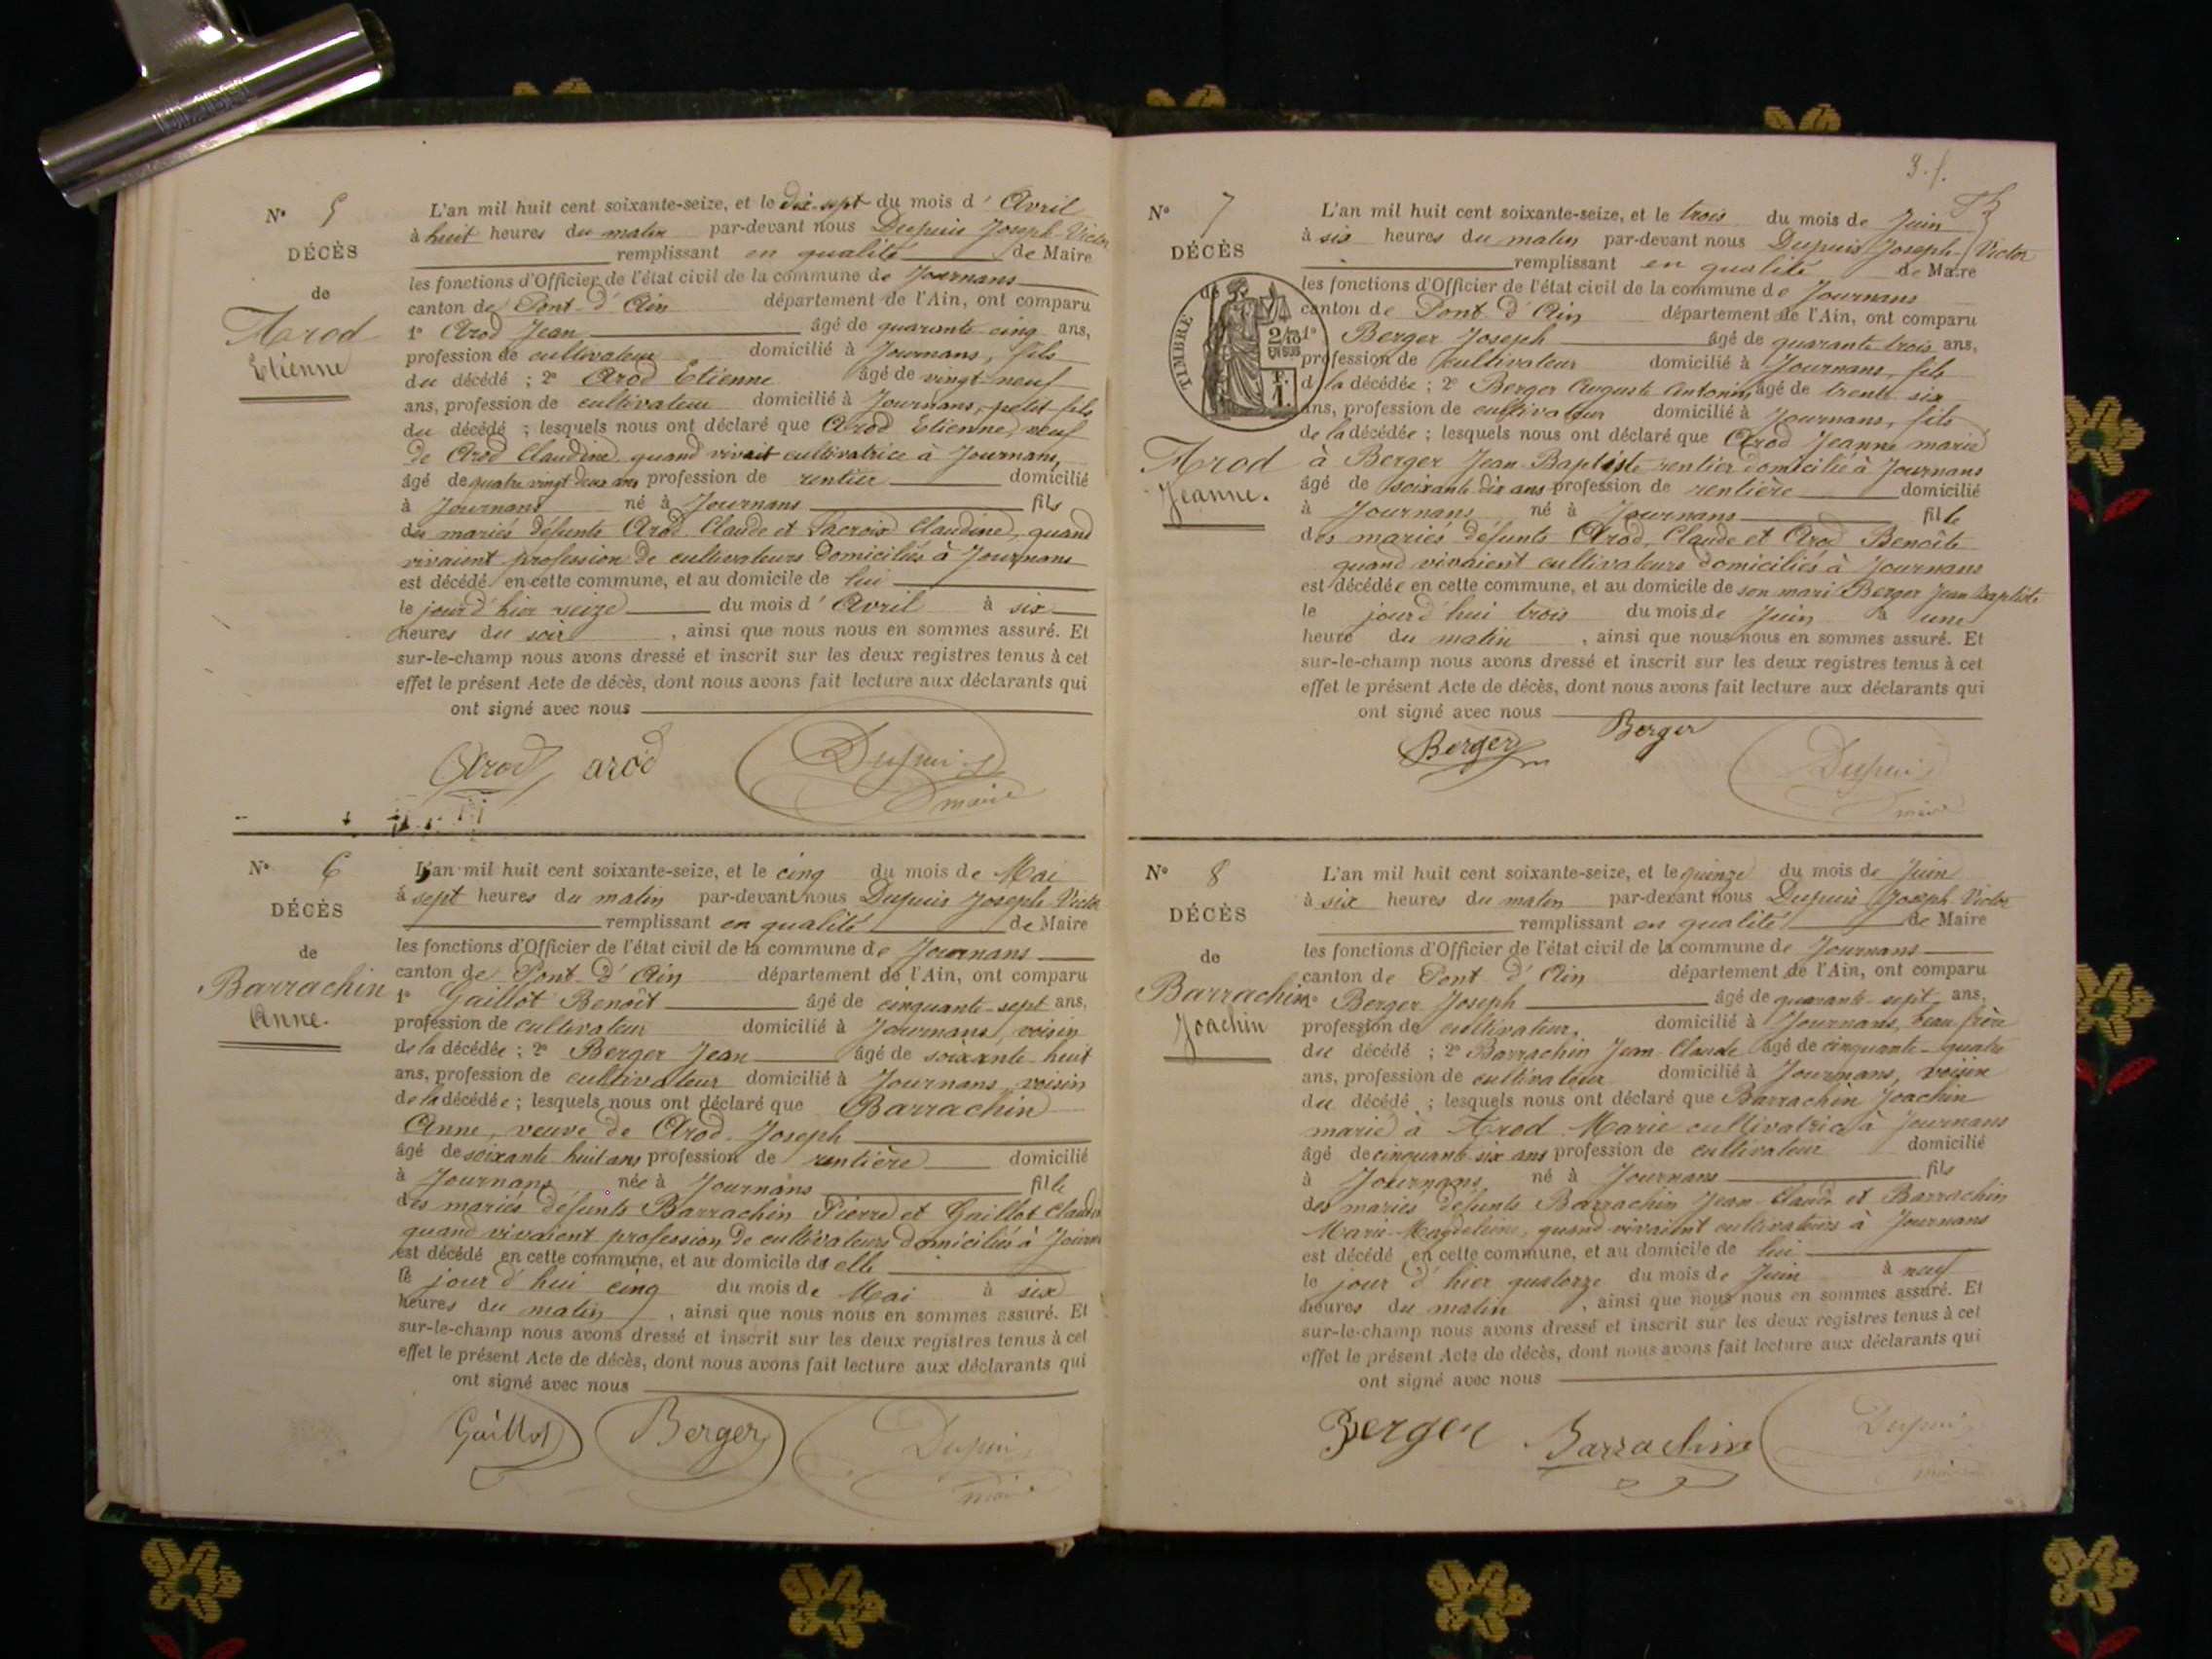 N° 5
DÉCÈS
de
Arod
Etienne
L'an mil huit cent soixante-seize, et le dix-sept du mois d'Avril
à huit heures du matin par-devant nous Dupuis Joseph-Victor
remplissant en qualité de Maire
les fonctions d'Officier de l'état civil de la commune de Journans
canton de Pont-d'Ain département de l'Ain, ont comparu
1° Arod Jean âgé de quarante-cinq ans,
profession de cultivateur domicilié à Journans, fils
du décédé ; 2° Arod Etienne âgé de vingt-neuf
ans, profession de cultivateur domicilié à Journans, petit-fils
du décédé ; lesquels nous ont déclaré que Arod Etienne, veuf
de Arod Claudine quand vivait cultivatrice à Journans,
âgé de quatre vingt deux ans profession de rentier domicilié
à Journans né à Journans fils
des mariés défunts Arod Claude et Lacroix Claudine, quand
vivaient profession de cultivateurs domiciliés à Journans
est décédé en cette commune, et au domicile de lui
le jour d'hier seize du mois d'Avril à six
heures du soir, ainsi que nous nous en sommes assuré. Et
sur-le-champ nous avons dressé et inscrit sur les deux registres tenus à cet
effet le présent Acte de décès, dont nous avons fait lecture aux déclarants qui
ont signé avec nous
Arod arod Dupuis
maire
N° 6
DÉCÈS
de
Barrachin
Anne.
L'an mil huit cent soixante-seize, et le cinq du mois de Mai
à sept heures du matin par-devant nous Dupuis Joseph-Victor
remplissant en qualité de Maire
les fonctions d'Officier de l'état civil de la commune de Journans
canton de Pont-d'Ain département de l'Ain, ont comparu
1° Gaillot Benoît âgé de cinquante-sept ans,
profession de cultivateur domicilié à Journans, voisin
de la décédée ; 2° Berger Jean âgé de soixante-huit
ans, profession de cultivateur domicilié à Journans, voisin
de la décédée ; lesquels nous ont déclaré que Barrachin
Anne, veuve de Arod Joseph
âgé de soixante-huit ans profession de rentière domicilié
à Journans née à Journans fille
des mariés défunts Barrachin Pierre et Gaillot
quand vivaient profession de cultivateurs domiciliés à
est décédé en cette commune, et au domicile de elle
le jour d'hui cinq du mois de Mai à six
heures du matin, ainsi que nous nous en sommes assuré. Et
sur-le-champ nous avons dressé et inscrit sur les deux registres tenus à cet
effet le présent Acte de décès, dont nous avons fait lecture aux déclarants qui
ont signé avec nous
Gaillot Berger Dupuis
maire
3. f.
N° 7
DÉCÈS
de
TIMBRE
2/10
EN SUS
Arod
Jeanne.
L'an mil huit cent soixante-seize, et le trois du mois de Juin
à six heures du matin par-devant nous Dupuis Joseph-Victor
remplissant en qualité de Maire
les fonctions d'Officier de l'état civil de la commune de Journans
canton de Pont-d'Ain département de l'Ain, ont comparu
1° Berger Joseph âgé de quarante trois ans,
profession de cultivateur domicilié à Journans, fils
d la décédée ; 2° Berger Auguste Antonin âgé de trente six
ans, profession de cultivateur domicilié à Journans, fils
de la décédée ; lesquels nous ont déclaré que Arod Jeanne marié
à Berger Jean-Baptiste rentier domicilié à Journans
âgé de soixante dix ans profession de rentière domicilié
à Journans né à Journans fille
des mariés défunts Arod Claude et Arod Benoîte
quand vivaient cultivateurs domiciliés à Journans
est décédée en cette commune, et au domicile de son mari Berger Jean Baptiste
le jour d'hui trois du mois de Juin à une
heure du matin, ainsi que nous nous en sommes assuré. Et
sur-le-champ nous avons dressé et inscrit sur les deux registres tenus à cet
effet le présent Acte de décès, dont nous avons fait lecture aux déclarants qui
ont signé avec nous
Berger Berger Dupuis
maire
N° 8
DÉCÈS
de
Barrachin
Joachin
L'an mil huit cent soixante-seize, et le quinze du mois de Juin
à six heures du matin par-devant nous Dupuis Joseph Victor
remplissant en qualité de Maire
les fonctions d'Officier de l'état civil de la commune de Journans
canton de Pont d'Ain département de l'Ain, ont comparu
1° Berger Joseph âgé de quarante-sept ans,
profession de cultivateur. domicilié à Journans, beau frère
du décédé ; 2° Barrachin Jean-Claude âgé de cinquante-quatre
ans, profession de cultivateur domicilié à Journans, voisin
du décédé ; lesquels nous ont déclaré que Barrachin Joachin
marié à Arod Marie cultivatrice à Journans
âgé de cinquante six ans profession de cultivateur domicilié
à Journans né à Journans fils
des mariés défunts Barrachin Jean-Claude et Barrachin
Marie-Magdeleine, quand vivaient cultivateurs à Journans
est décédé en cette commune, et au domicile de lui
le jour d'hier quatorze du mois de Juin à neuf
heures du matin, ainsi que nous nous en sommes assuré. Et
sur-le-champ nous avons dressé et inscrit sur les deux registres tenus à cet
effet le présent Acte de décès, dont nous avons fait lecture aux déclarants qui
ont signé avec nous
Berger Barrachin Dupuis
maire